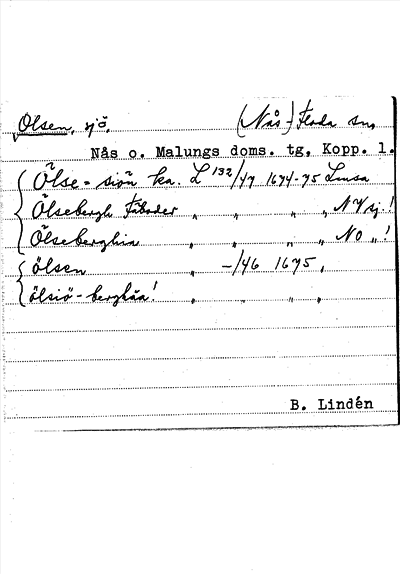 Ölsen, sjö, (Nås-) Floda sn,
Nås o. Malungs doms. tg, Kopp. l.
Ölse-siön ka. L 132/47 1674-75
Ölsebergh Fäboder " " " " NV sj.!
Ölseberghia " " " " NO "!
ölsen " -/46 1675,
ölsiö-berghåa! " " " "
B. Lindén